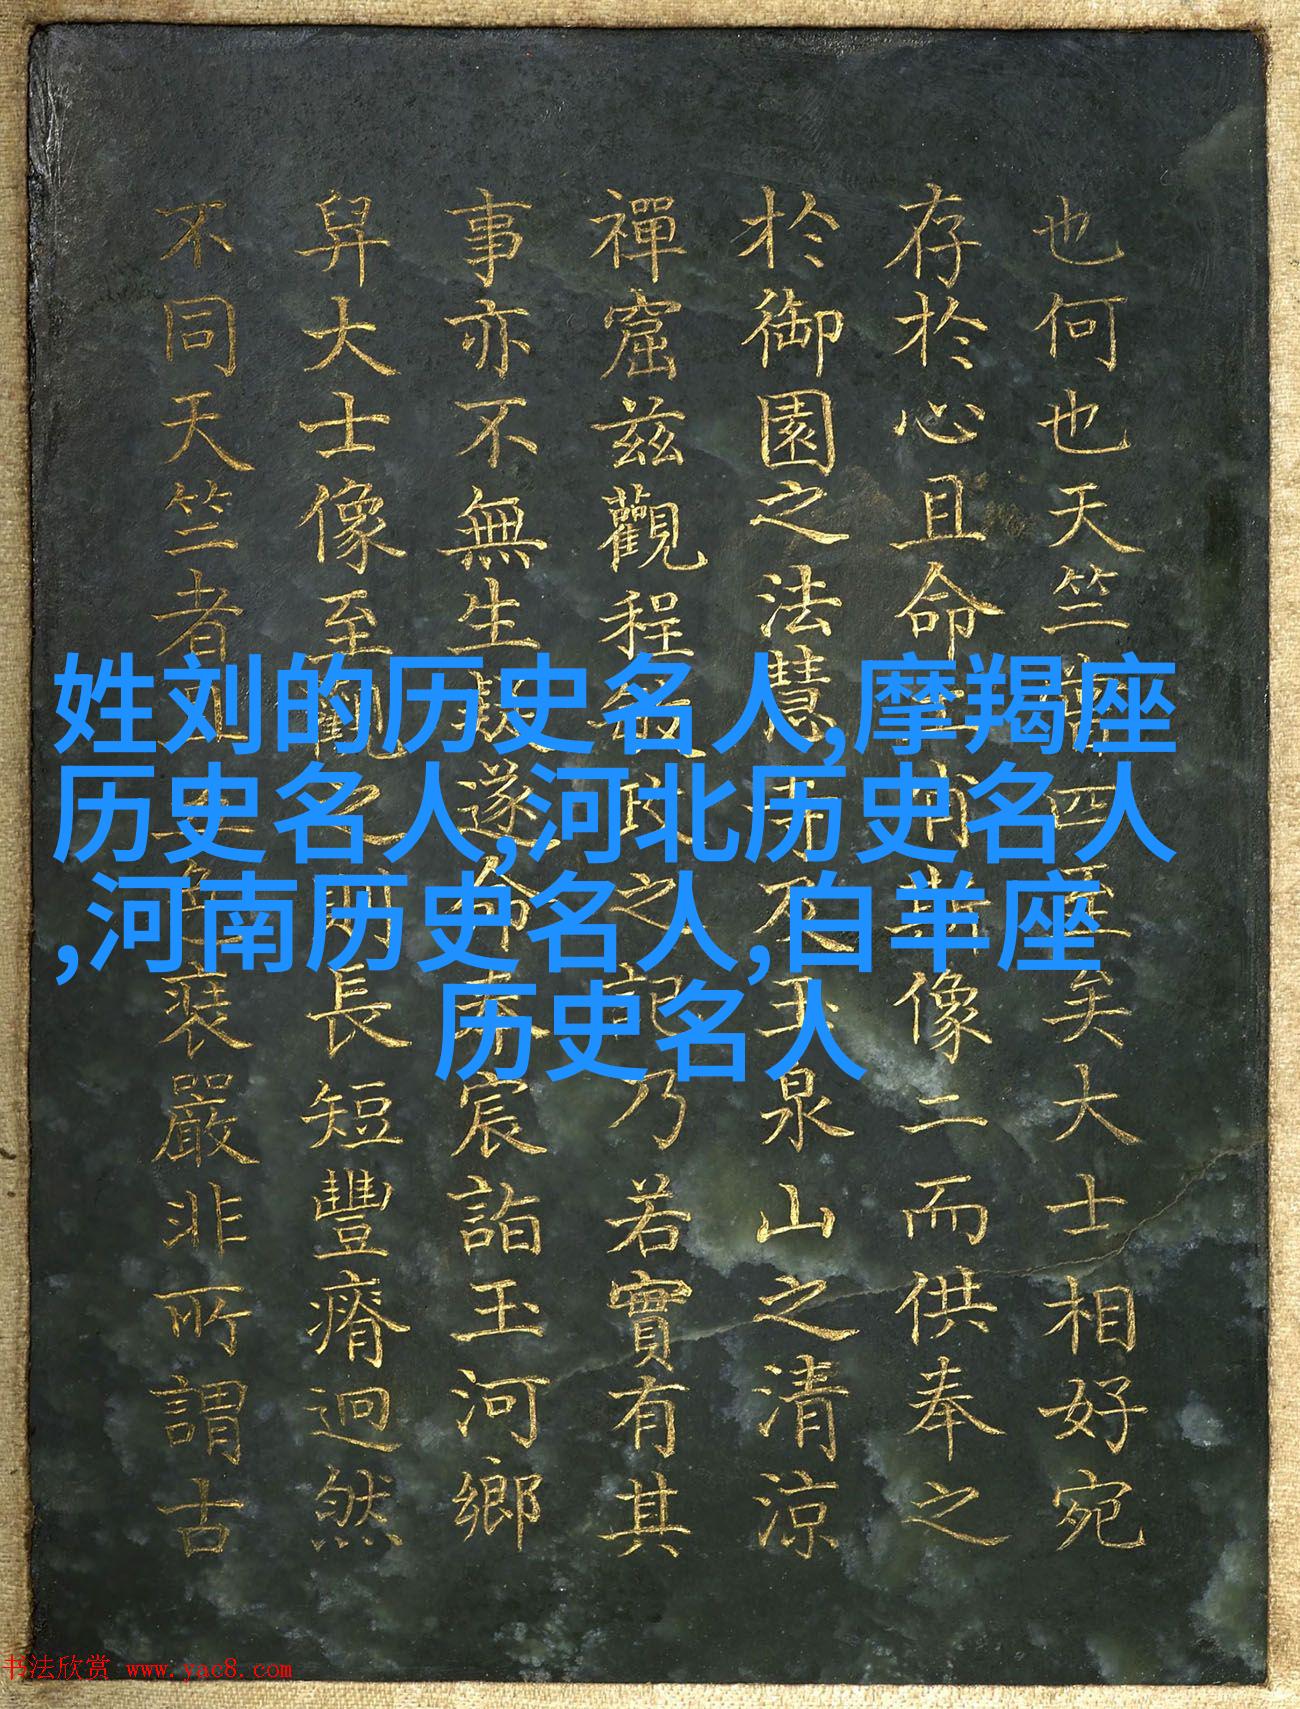 也何也天竺四至矣大士相好宛
存於心且命像二而供奉之
於御園之法慧玉泉山之清涼
禪窟茲觀程政之記乃若實有其
事亦不無生疑遂命宸詣玉河鄉
舁大士像至觀之則長短豐瘠迥然
不同天竺者裝嚴非所謂古
姓刘的历史名人,摩羯座
历史名人,河北历史名人
,河南历史名人,白羊座
历史名人
书法欣赏 www.yac8.com